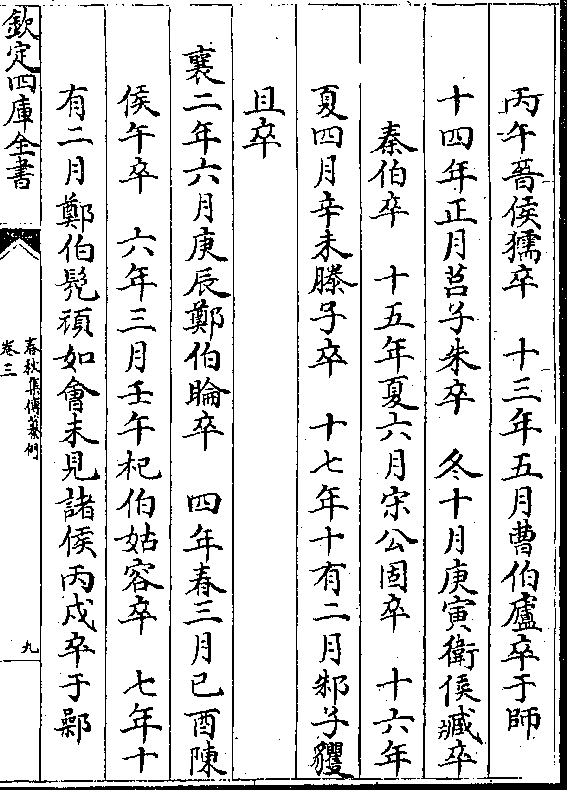 丙午晉侯獳卒　十三年五月曹伯廬卒于師
十四年正月莒子朱卒　冬十月庚寅衛侯臧卒
秦伯卒　十五年夏六月宋公固卒　十六年
夏四月辛未滕子卒　十七年十有二月邾子貜
且卒
襄二年六月庚辰鄭伯睔卒　四年春三月己酉陳
侯午卒　六年三月壬午杞伯姑容卒　七年十
有二月鄭伯髠頑如會未見諸侯丙戌卒于鄵
欽定四庫全書
春秋集傳纂例
卷三
九